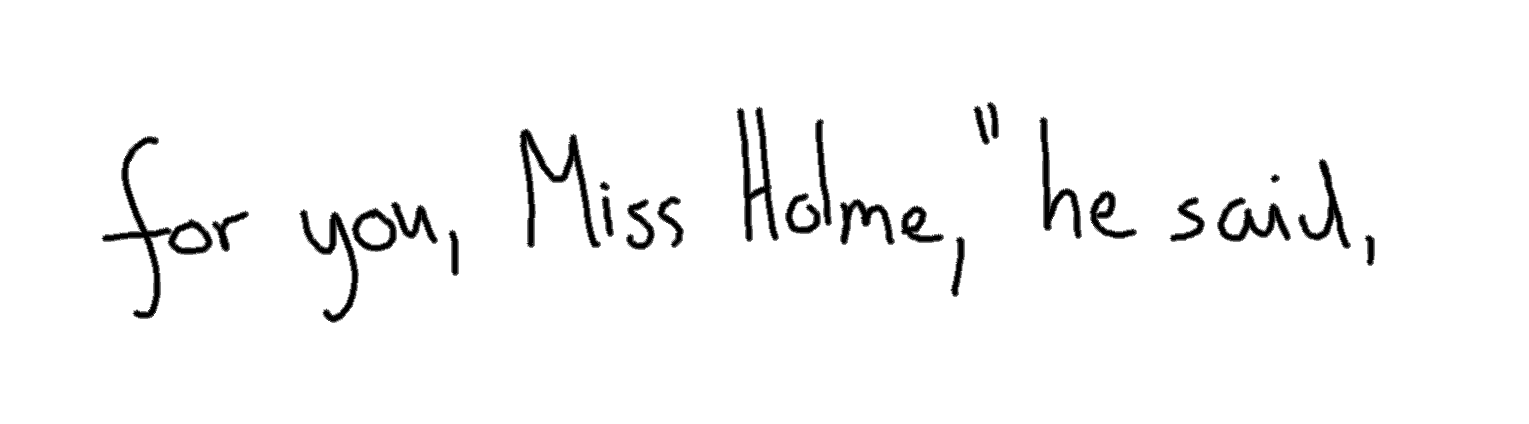 for you, Miss Holme," he said,